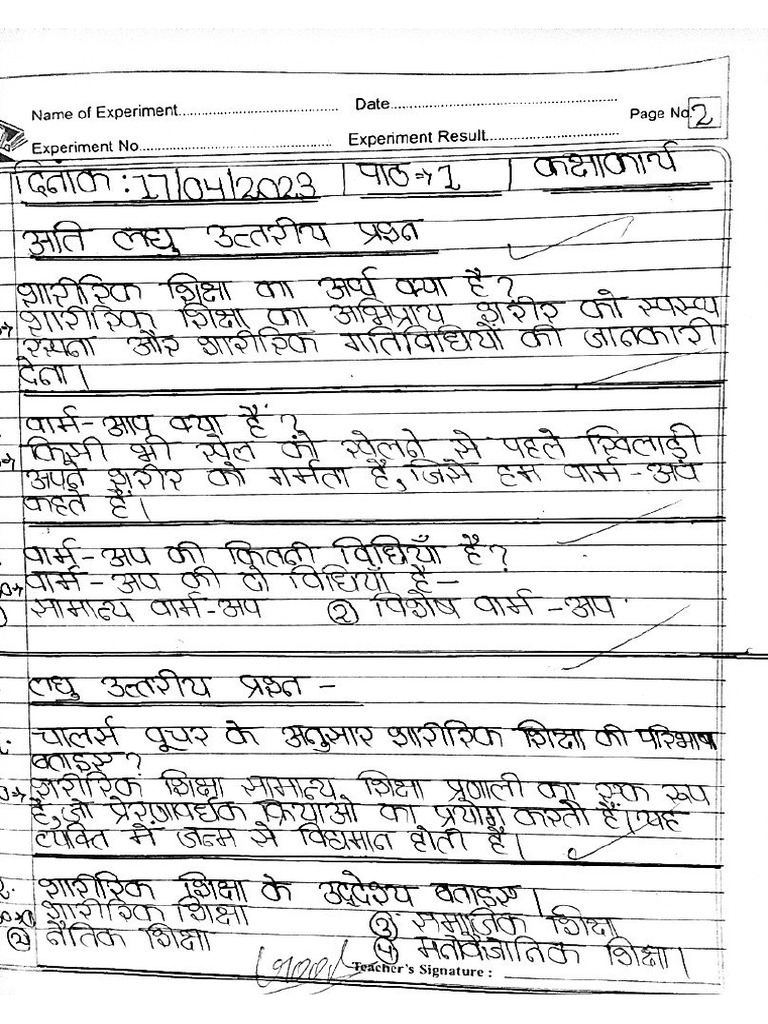 Name of Experiment Date
Page No. 2
Experiment No Experiment Result
दिनांक : 17/04/2023 | पाठ → 1 | कक्षाकार्य
अति लघु उत्तरीय प्रश्न
शारीरिक शिक्षा का अर्थ क्या है?
शारीरिक शिक्षा का अभिप्राय शरीर को स्वस्थ
रखना और शारीरिक गतिविधियों की जानकारी
देना।
वार्म-आप क्या हैं?
किसी भी खेल को खेलने से पहले खिलाड़ी
अपने शरीर को गर्मता है, जिसे हम वार्म-अप
कहते हैं।
वार्म-अप की कितनी विधियाँ है?
वार्म-अप की दो विधियाँ है–
सामान्य वार्म-अप ② विशेष वार्म-अप
लघु उत्तरीय प्रश्न –
चार्लस वूचर के अनुसार शारीरिक शिक्षा की परिभाषा
बताइए?
शारीरिक शिक्षा सामान्य शिक्षा प्रणाली का एक रूप
है, जो प्रेरणावर्धक क्रियाओ का प्रयोग करती हैं। यह
व्यक्ति में जन्म से विद्यमान होती है।
2. शारीरिक शिक्षा के उद्देश्य बताइए।
शारीरिक शिक्षा ③ समाजिक शिक्षा
② नैतिक शिक्षा ④ मनोवैज्ञानिक शिक्षा।
Good
Teacher's Signature :